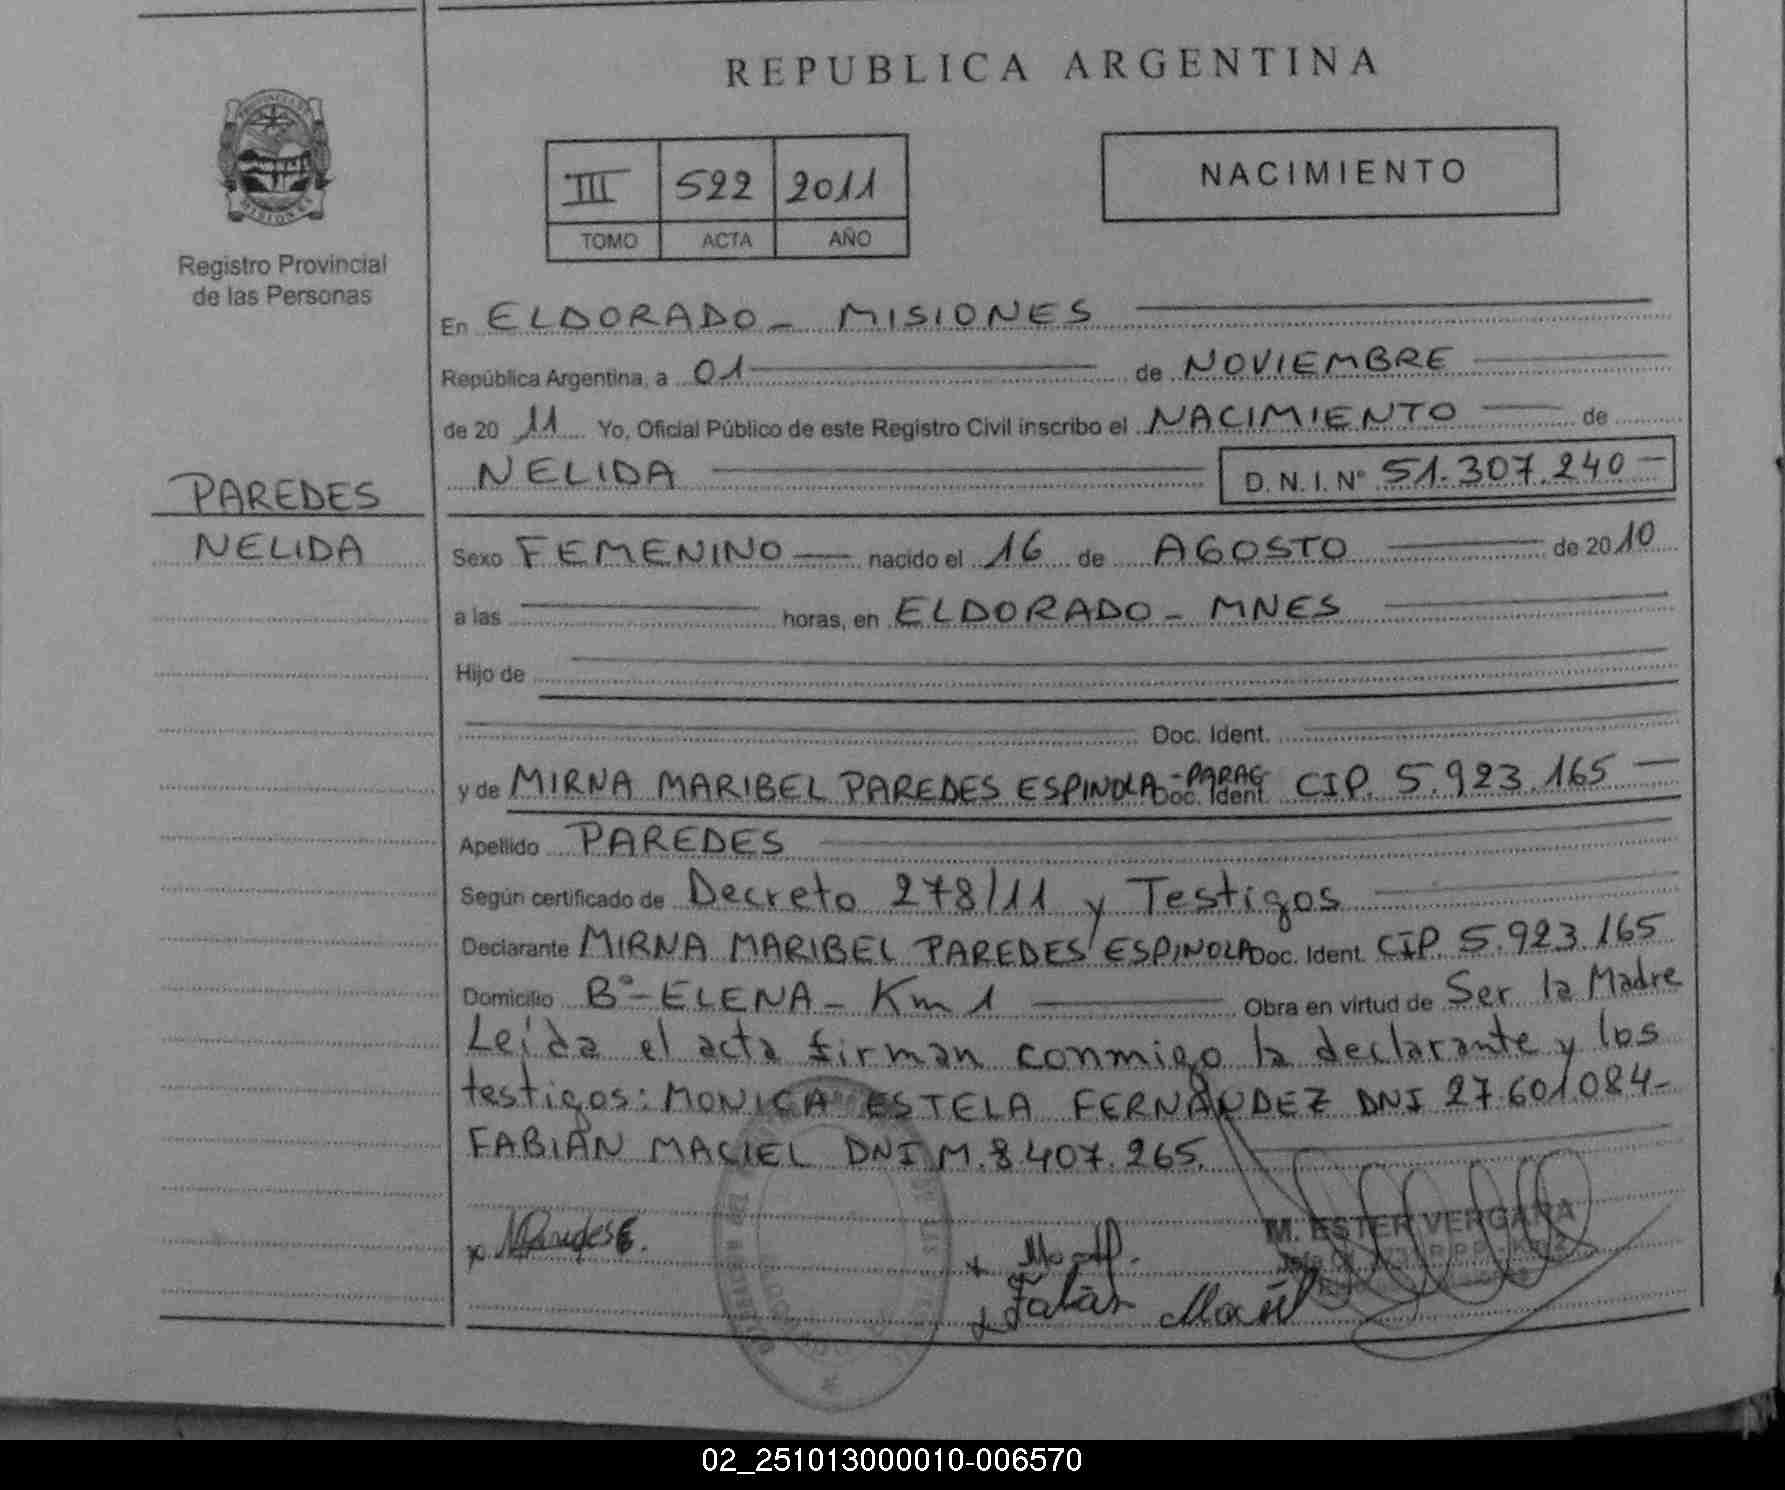 REPUBLICA ARGENTINA
PROVINCIA DE MISIONES
Registro Provincial
de las Personas
III 522 2011
TOMO ACTA AÑO
NACIMIENTO
En ELDORADO - MISIONES
República Argentina, a 01 de NOVIEMBRE
de 20 11 Yo, Oficial Público de este Registro Civil inscribo el NACIMIENTO de
NELIDA D.N.I. Nº 51.307.240
PAREDES
NELIDA
Sexo FEMENINO nacido el 16 de AGOSTO de 2010
a las horas, en ELDORADO - MNES
Hijo de
Doc. Ident.
y de MIRNA MARIBEL PAREDES ESPINOLA - PARAG Doc. Ident. CIP. 5.923.165
Apellido PAREDES
Según certificado de Decreto 278/11 y Testigos
Declarante MIRNA MARIBEL PAREDES ESPINOLA Doc. Ident. CIP. 5.923.165
Domicilio Bº - ELENA - Km 1 Obra en virtud de Ser la Madre
Leída el acta firman conmigo la declarante y los
testigos: MONICA ESTELA FERNANDEZ DNI 27.601.084-
FABIAN MACIEL DNI M. 8.407.265.
x MParedesE.
x
x Fabián Maciel
M. ESTER VERGARA
02_251013000010-006570